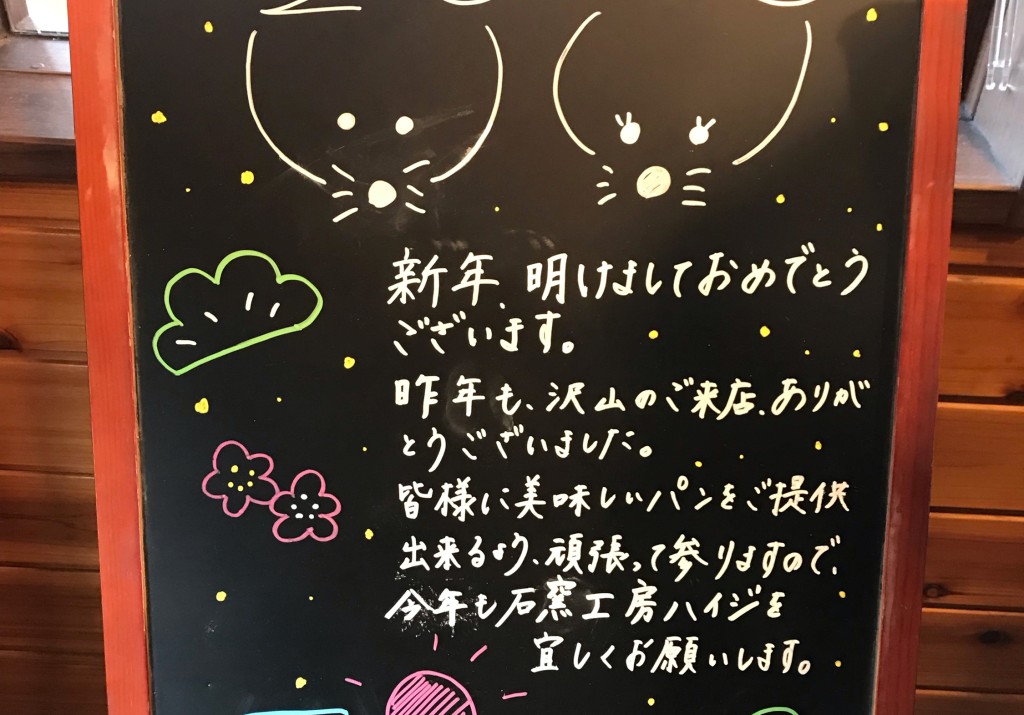 新年、明けましておめでとう
ございます。
昨年も、沢山のご来店、ありが
とうございました。
皆様に美味しいパンをご提供
出来るよう、頑張って参りますので、
今年も石窯工房ハイジを
宜しくお願いします。